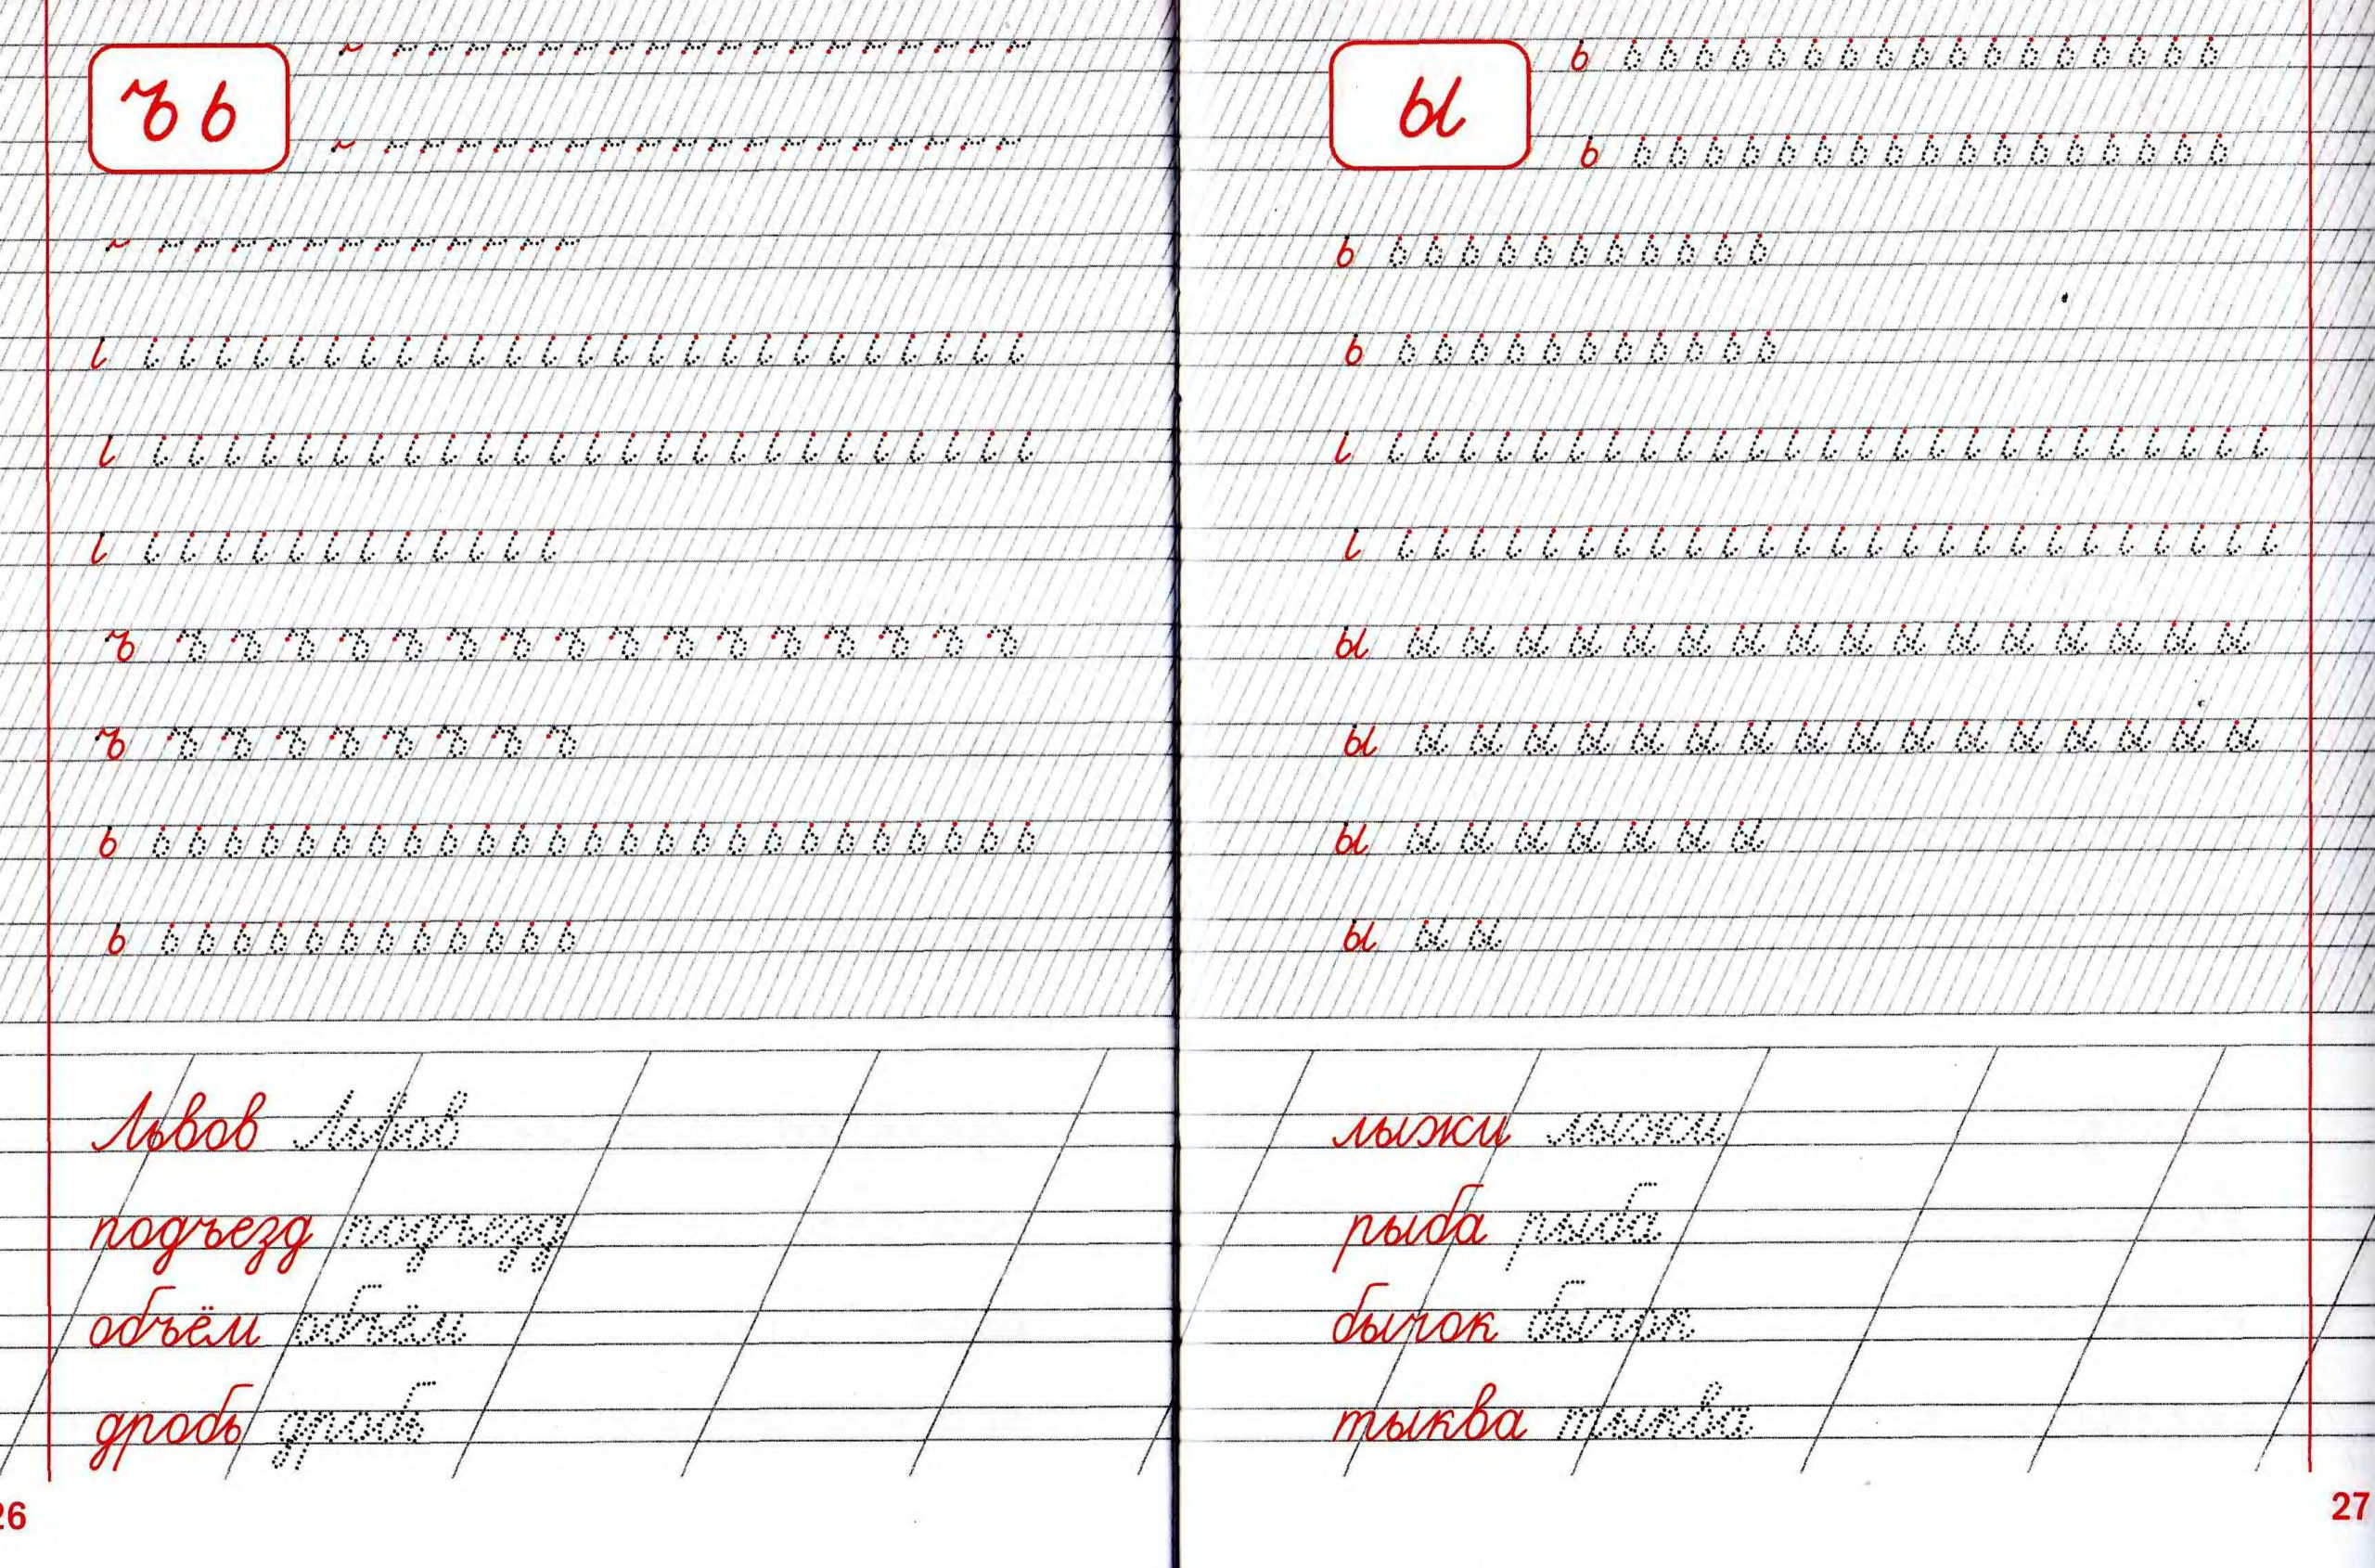 ъ ь
ъ ъ ъ ъ ъ ъ ъ ъ ъ ъ ъ ъ ъ ъ ъ ъ ъ
ъ ъ ъ ъ ъ ъ ъ ъ ъ
ь ь ь ь ь ь ь ь ь ь ь ь ь ь ь ь ь ь ь ь ь ь ь ь ь ь
ь ь ь ь ь ь ь ь ь ь ь ь ь
Львов Львов
подъезд подъезд
объём объём
дробь дробь
26
ы
ь ь ь ь ь ь ь ь ь ь ь ь ь ь ь ь ь ь
ь ь ь ь ь ь ь ь ь ь ь ь ь ь ь ь ь ь
ь ь ь ь ь ь ь ь ь ь ь ь
ь ь ь ь ь ь ь ь ь ь ь ь
ы ы ы ы ы ы ы ы ы ы ы ы ы ы ы ы ы
ы ы ы ы ы ы ы ы ы ы ы ы ы ы ы ы ы
ы ы ы ы ы ы ы ы
ы ы ы
лыжи лыжи
рыба рыба
бычок бычок
тыква тыква
27